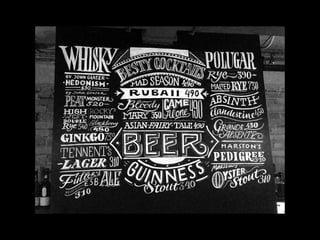 WHISKY
BY JOHN GLASER
HEDONISM
PEAT MONSTER
520
HIGH ROCKY
DOUBLE MOUNTAIN
RYE
GINKGO
TENNENT'S
LAGER 310
Fuller's
ESB ALE
310
BESTY COCKTAILS
MAD SEASON 490
RUBAII 490
Bloody CAME
MARY 350 Alone 490
ASIAN FAIRY TALE 490
BEER
GUINNESS
Stout
POLUGAR
Rye 390
MALTED RYE 730
ABSINTH
Clandestine
GRANDE
ABSENTE
MARSTON'S
PEDIGREE
MARSTON'S
OYSTER
Stout 310